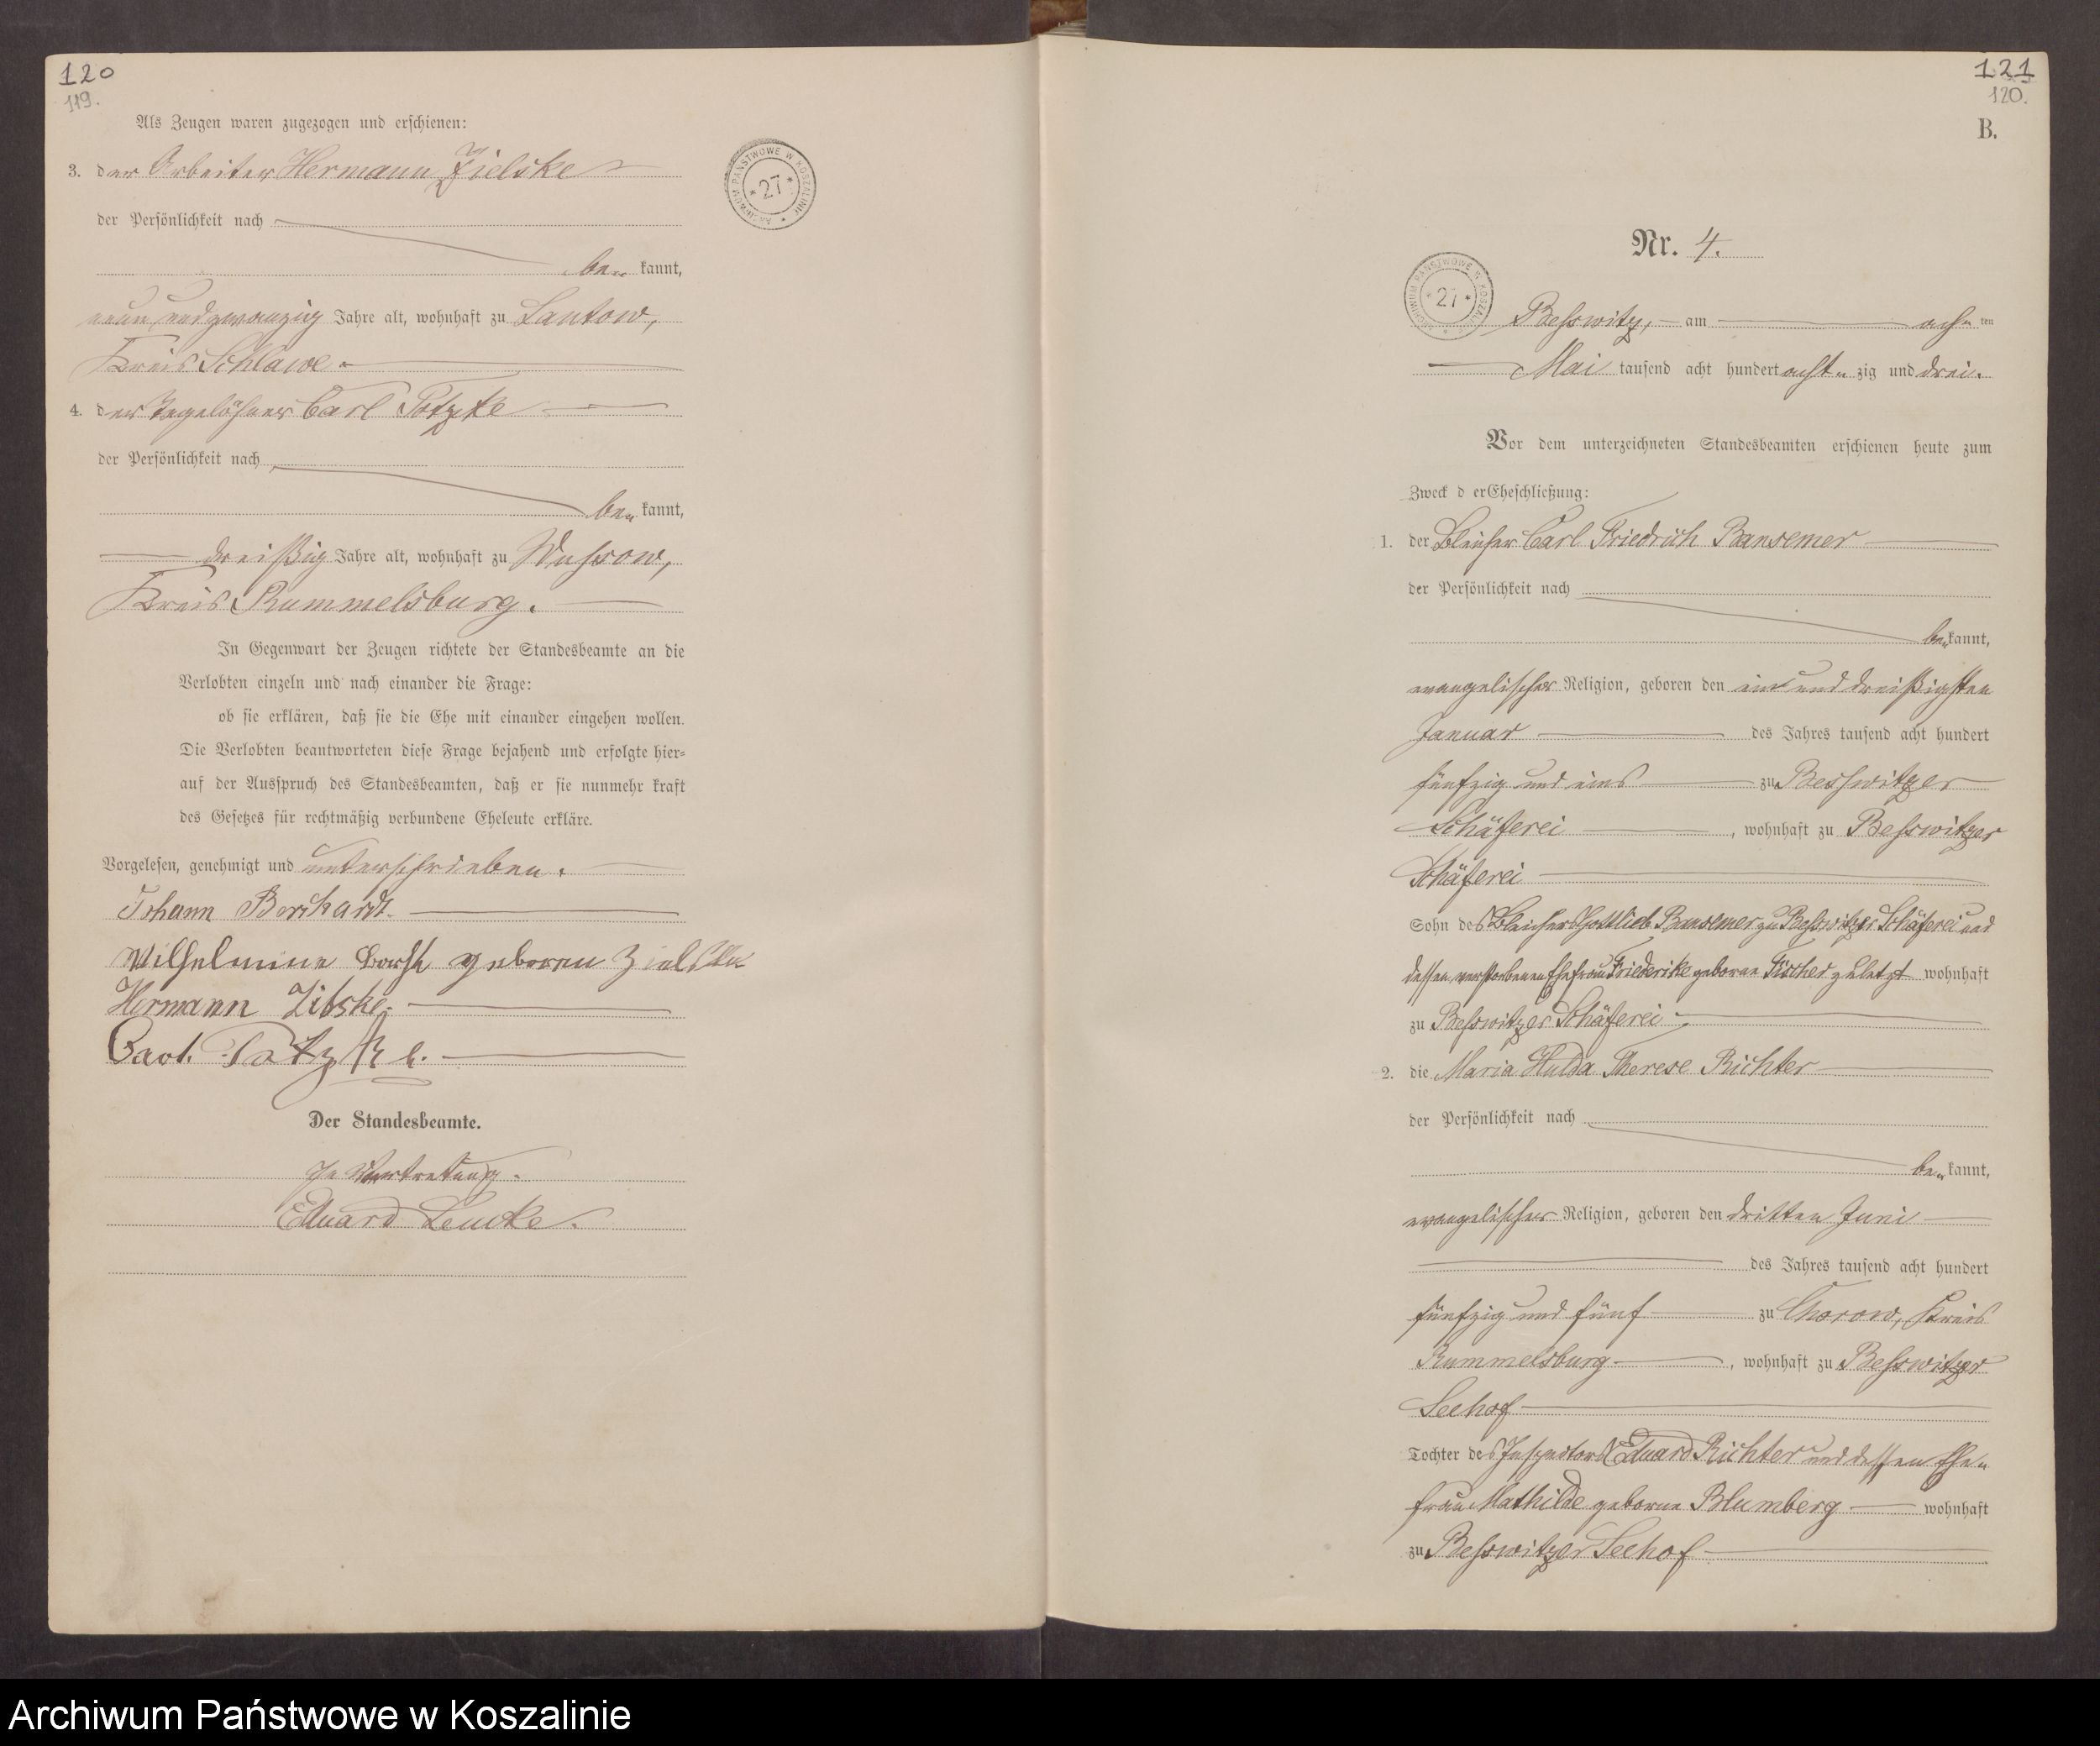 120
119.
Als Zeugen waren zugezogen und erschienen:
3. der Arbeiter Hermann Zielske
der Persönlichkeit nach
be„ kannt,
neun und zwanzig Jahre alt, wohnhaft zu Lantow,
Kreis Schlawe.
4. der Tagelöhner Carl Totzke
der Persönlichkeit nach
be„ kannt,
dreißig Jahre alt, wohnhaft zu Wussow,
Kreis Rummelsburg.
In Gegenwart der Zeugen richtete der Standesbeamte an die
Verlobten einzeln und nach einander die Frage:
ob sie erklären, daß sie die Ehe mit einander eingehen wollen.
Die Verlobten beantworteten diese Frage bejahend und erfolgte hier-
auf der Ausspruch des Standesbeamten, daß er sie nunmehr kraft
des Gesetzes für rechtmäßig verbundene Eheleute erkläre.
Vorgelesen, genehmigt und unterschrieben.
Johann
Wilhelmine geboren
Hermann
Carl
Der Standesbeamte.
In Vertretung.
Eduard Lemke.
ARCHIWUM PAŃSTWOWE W KOSZALINIE
* 27 *
121
120.
B.
Nr. 4.
ARCHIWUM PAŃSTWOWE W KOSZALINIE
* 27 *
Besswitz, am ach„ ten
Mai tausend acht hundert acht„ zig und drei.
Vor dem unterzeichneten Standesbeamten erschienen heute zum
Zweck d er Eheschließung:
1. der Carl Friedrich Bansemer
der Persönlichkeit nach
be„ kannt,
evangelischer Religion, geboren den ein und dreißigsten
Januar des Jahres tausend acht hundert
fünfzig und eins zu Besswitzer
Schäferei, wohnhaft zu Besswitzer
Schäferei
Sohn des Gottlieb Bansemer zu Besswitzer Schäferei und
dessen verstorbenen Ehefrau Friederike geborne Fischer zuletzt wohnhaft
zu Besswitzer Schäferei
2. die Maria Hulda Therese Richter
der Persönlichkeit nach
be„ kannt,
evangelischer Religion, geboren den dritten Juni
des Jahres tausend acht hundert
fünfzig und fünf zu Chorow, Kreis
Rummelsburg, wohnhaft zu Besswitzer
Seehof
Tochter des Inspectors Eduard Richter und dessen Ehe„
frau Mathilde geborne Blumberg wohnhaft
zu Besswitzer Seehof
Archiwum Państwowe w Koszalinie